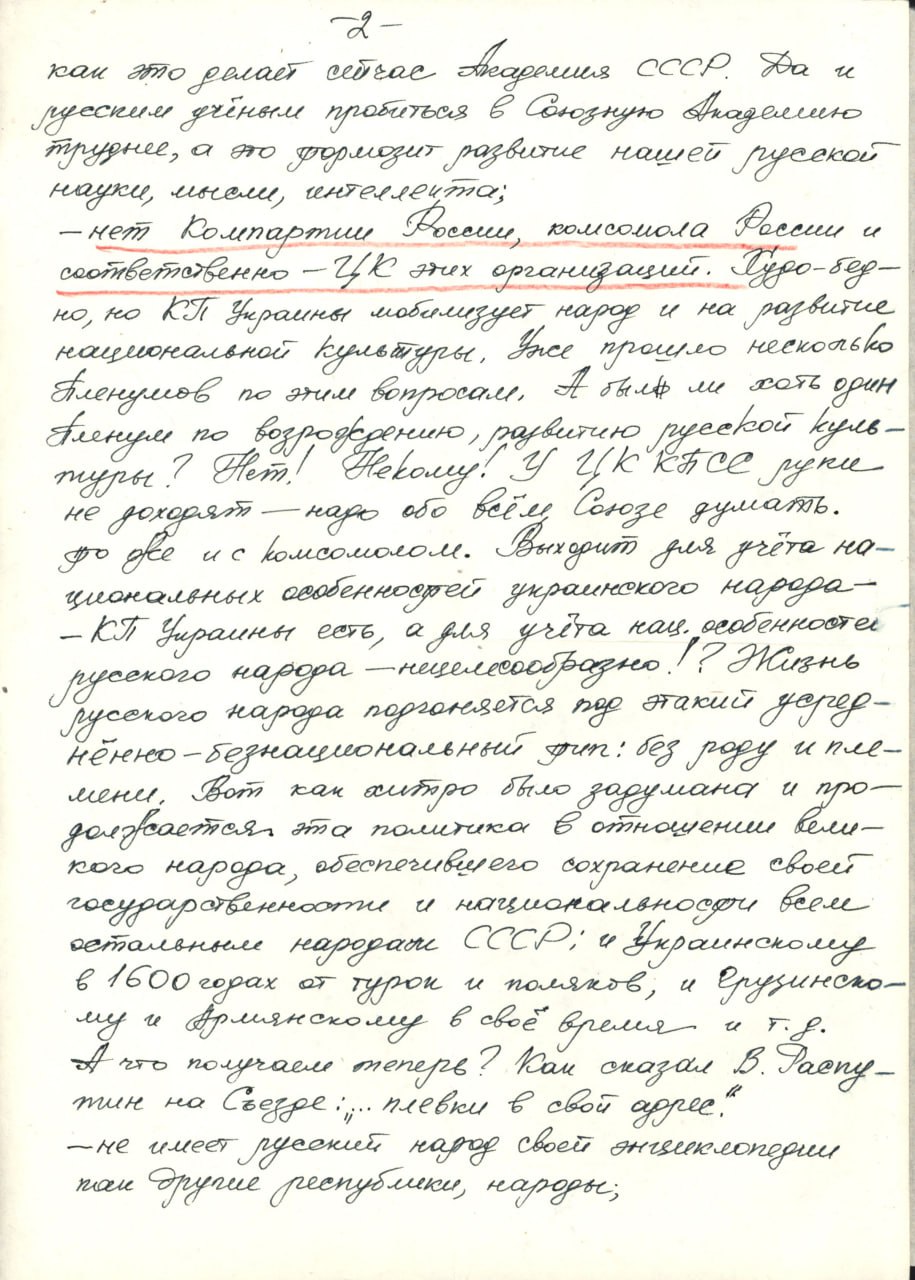 -2-
как это делает сейчас Академия СССР. Да и
русским учёным пробиться в Союзную Академию
труднее, а это тормозит развитие нашей русской
науки, мысли, интеллекта;
-нет Компартии России, комсомола России и
соответственно - ЦК этих организаций. Худо-бед-
но, но КП Украины мобилизует народ и на развитие
национальной культуры. Уже прошло несколько
Пленумов по этим вопросам. А был ли хоть один
Пленум по возрождению, развитию русской куль-
туры? Нет! Некому! У ЦК КПСС руки
не доходят - надо обо всём Союзе думать.
То же и с комсомолом. Выходит для учёта на-
циональных особенностей украинского народа-
-КП Украины есть, а для учёта нац. особенностей
русского народа - нецелесообразно!? Жизнь
русского народа подгоняется под этакий усред-
нённо-безнациональный тип: без роду и пле-
мени. Вот как хитро было задумана и про-
должается эта политика в отношении вели-
кого народа, обеспечившего сохранение своей
государственности и национальности всем
остальным народам СССР: и Украинскому
в 1600 годах от турок и поляков, и Грузинско-
му и Армянскому в своё время и т.д.
А что получаем теперь? Как сказал В. Распу-
тин на Съезде: „... плевки в свой адрес."
-не имеет русский народ своей энциклопедии
как другие республики, народы;